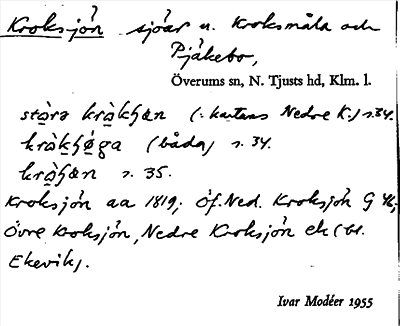 Kroksjön sjöar n. Kroksmåla och
Pjäkebo,
Överums sn, N. Tjusts hd, Klm. l.
stɷ̀ra krɷ̀kʃɷn (: kartans Nedre K.) s. 34.
(båda) s. 34.
s. 35.
Kroksjön aa 1819; Öf. Ned. Kroksjön G 46;
Övre Kroksjön, Nedre Kroksjön ek (bl.
Ekevik).
Ivar Modéer 1955